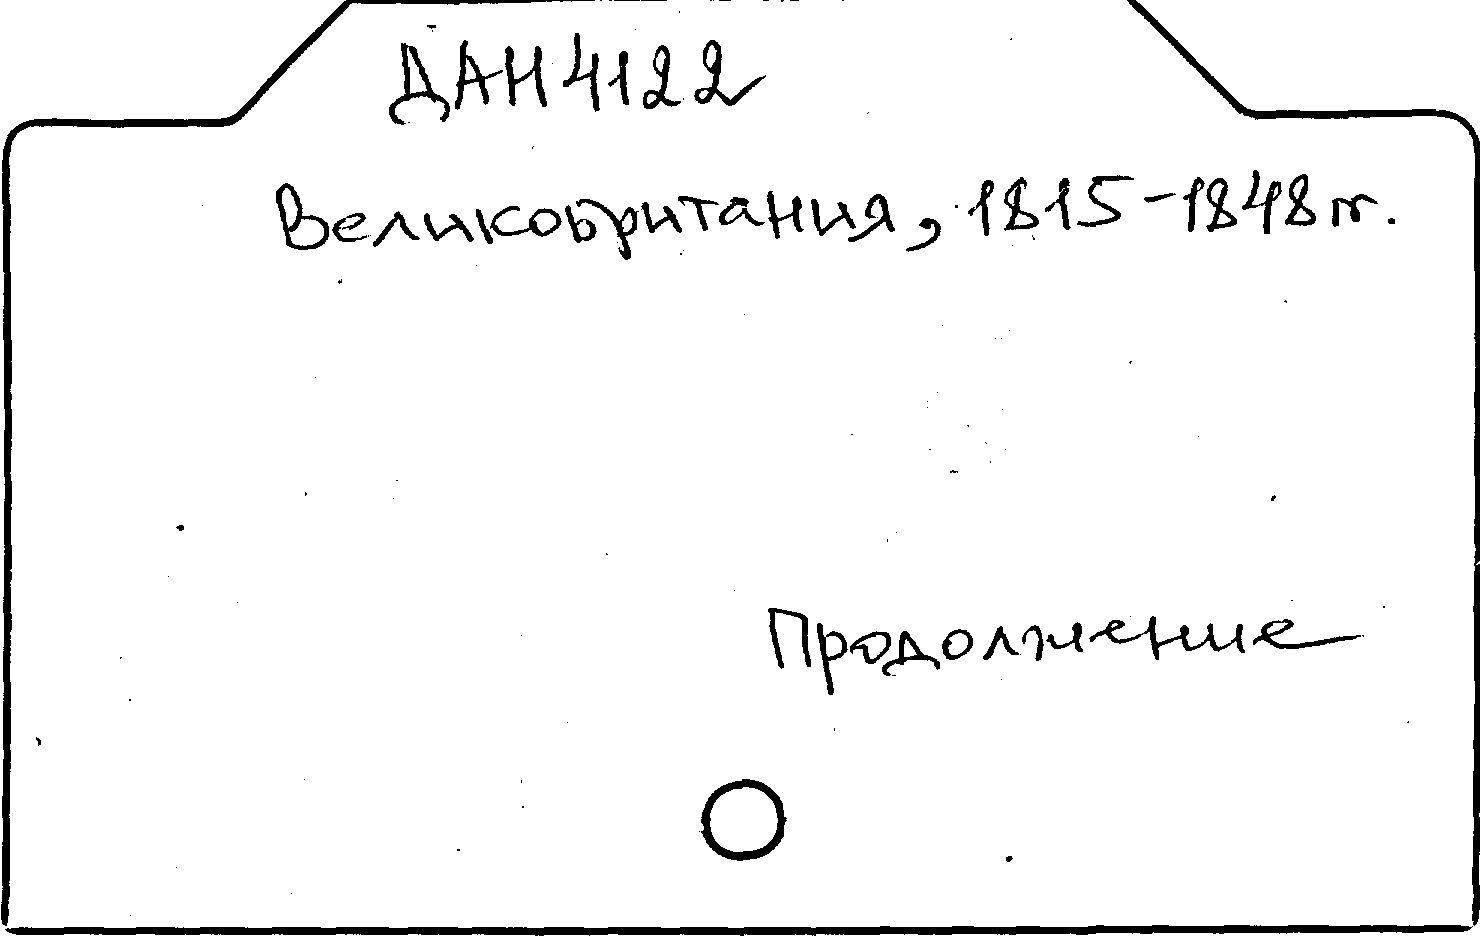 ДАН 4122
Великобритания, 1815-1848 гг.
Продолжение